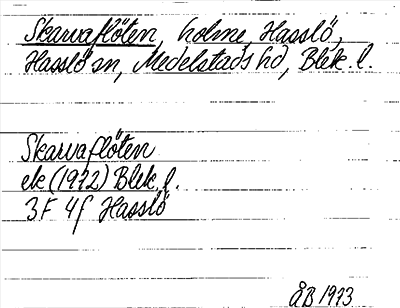 Skarvaflöten, holme, Hasslö,
Hasslö sn, Medelstads hd, Blek. l.
Skarvaflöten
ek (1972) Blek. l.
3F 4f Hasslö
ÅB 1973